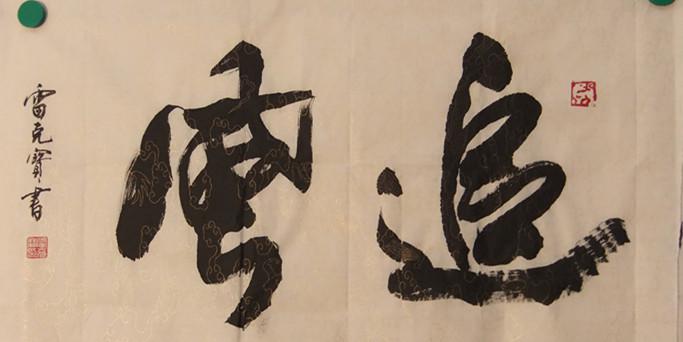 追夢
雷克寶書